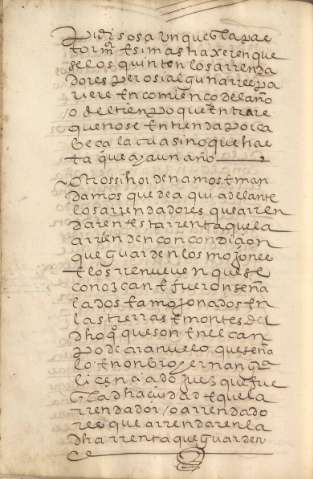 torm̃ t si mas traxeren que
se los quinten los arrenda
dores pero si algun arre pa
riere en comienço del año
/o del tienpo que entrare
que no se entienda por ca
beça la cria sino que has
ta que aya un año
~ Otrossi hordenamos t man
damos que de a qui adelante
los arrendadores que arren
daren esta rrenta que la
arrienden con condiçion
que guarden los mojones
t los rrenueven que se
conozcan t fueron seña
lados t amojonados en
las tierras t montes del
dho q̃ son en el can
po de arañuelo que seña
lo t nonbro fernan
liçençiado juez que fue
dha çiudad t que la
rrendador /o arrendado
res que arrendaren la
dha rrenta que guarden